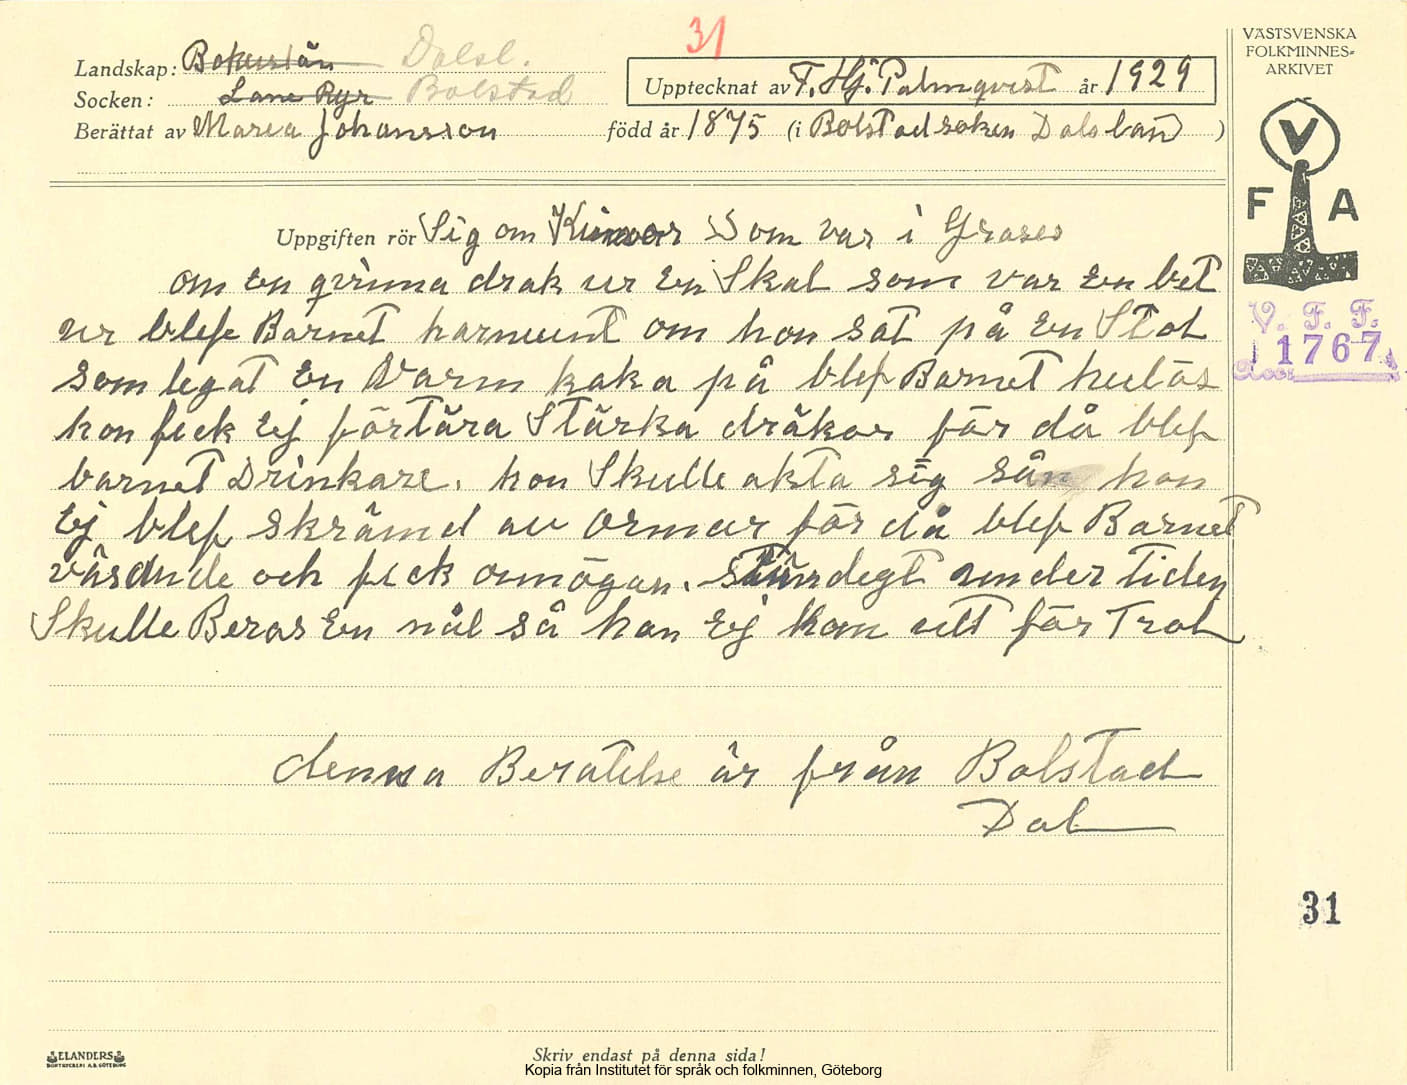 31
VÄSTSVENSKA
FOLKMINNES-
ARKIVET
Landskap: Bohuslän Dalsl.
Socken: Lane Ryr Bolstad
Upptecknat av F. Hj. Palmqvist år 1929
Berättat av Maria Johansson född år 1875 (i Bolstad soken Dalslan )
V
F A
Uppgiften rör Sig om Kinnor Som var i Groses
om En qvinna drak ur En Skal som var En bet
ur blef Barnet harmunt om hon sat på En Stol
som legat En Varm kaka på blef Barnet hulös
hon fick Ej förtära Stärka dräkor för då blef
barnet Drinkare. hon Skulle akta sig sån hon
Ej blef skrämd av ormar för då blef Barnet
väsande och fick onnögon. Ständegt under tiden
Skulle Beras En nål så hon Ej kom utt för Trol
denna Beratelse är från Bolstad
Dal
V. F. F.
1767
31
ELANDERS
BOKTRYCKERI A.B. GÖTEBORG
Skriv endast på denna sida!
Kopia från Institutet för språk och folkminnen, Göteborg